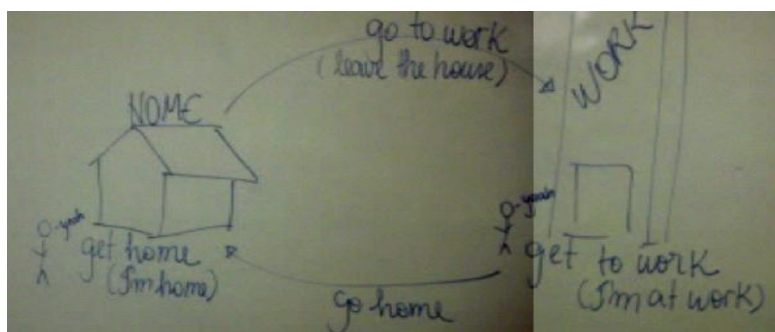 go to work
(leave the house)
HOME
WORK
-yeah
get home
(I'm home)
-yeah
get to work
(I'm at work)
go home